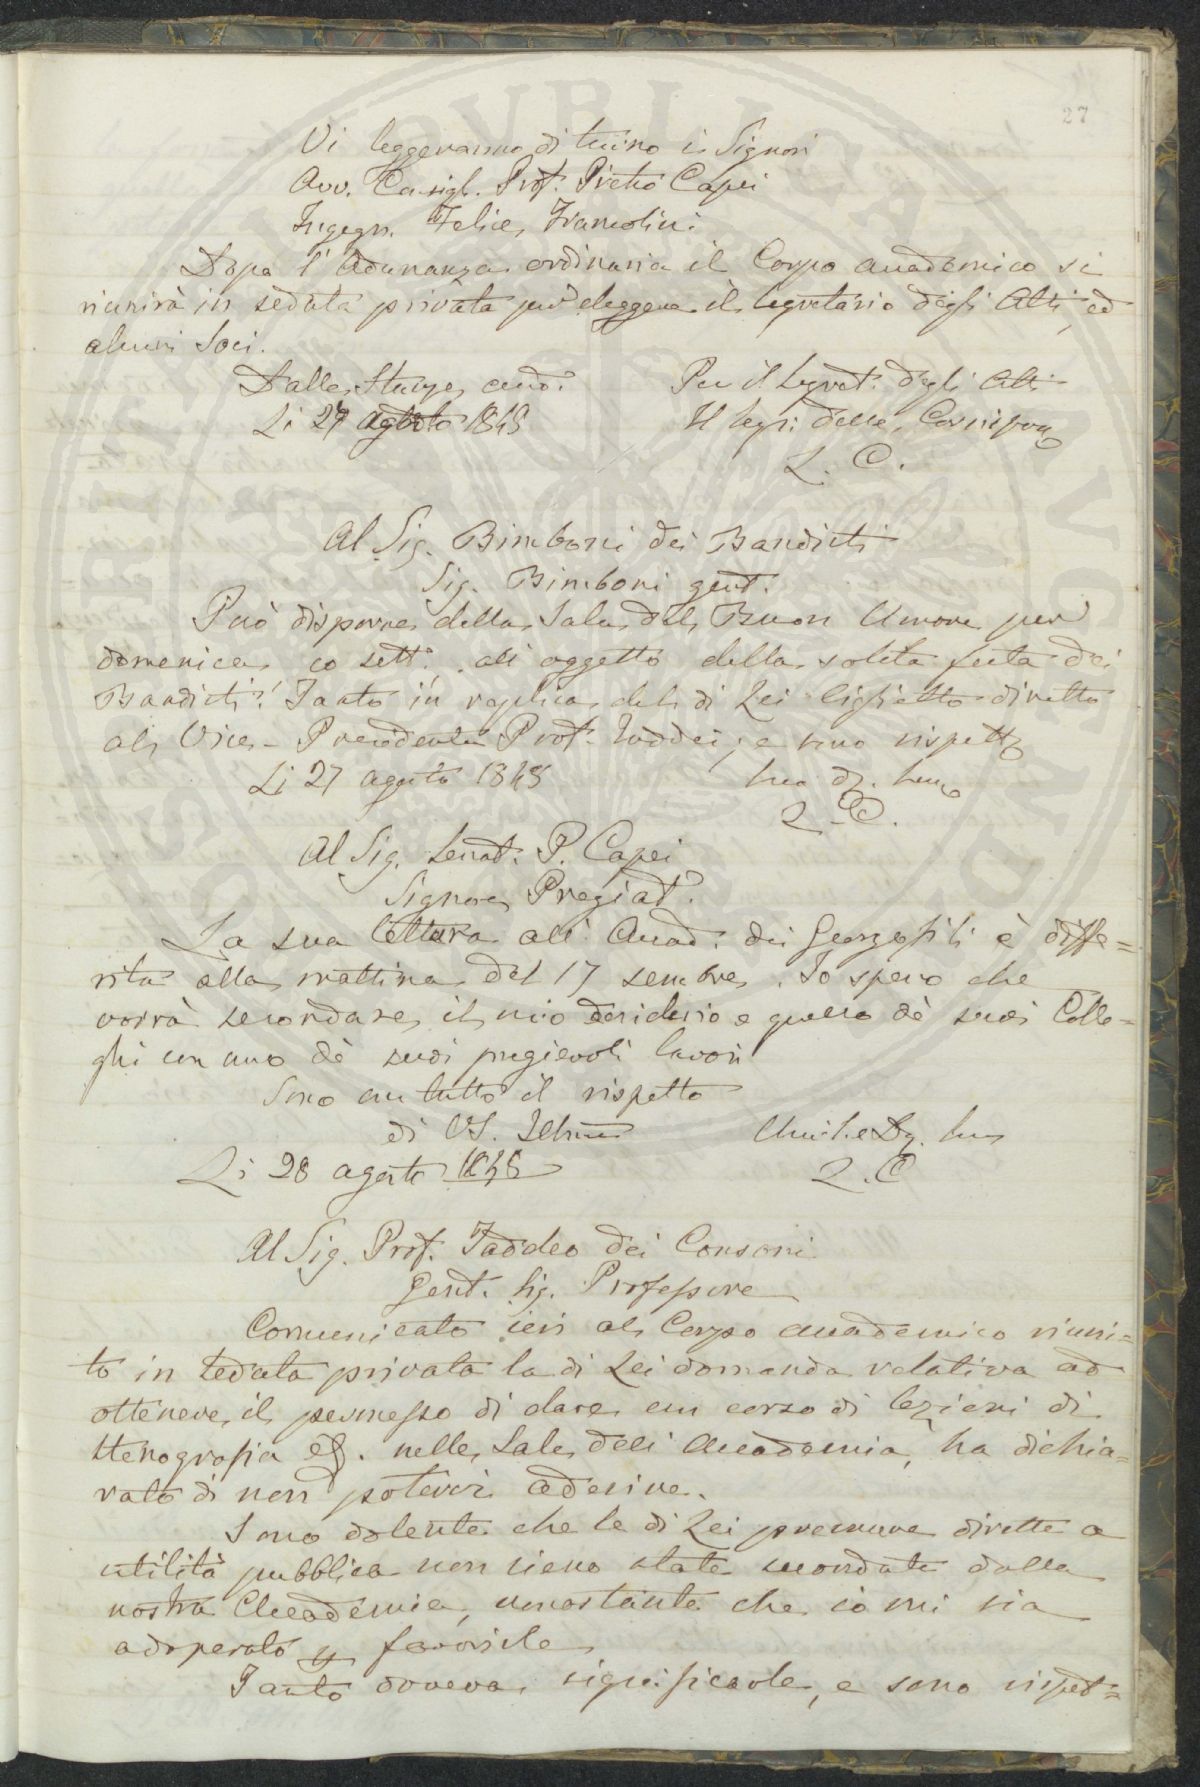 27
Vi leggeranno di turno i Signori
Avv. Consigl. Prof. Pietro Capei
Ingegn. Felice Francolini
Dopo l'Adunanza ordinaria il Corpo accademico si
riunirà in seduta privata per eleggere il Segretario degli Atti, ed
alcuni Soci.
Dalle Stanze accad. Per il Segret. degli Atti
Li 27 agosto 1848 Il Segr. delle Corrispon
L. C.
Al Sig. Bimboni dei Bandisti
Sig. Bimboni gent.
Può disporre della Sala del Buon Umore per
domenica 10 sett. all'oggetto della solita festa dei
Bandisti. Tanto in replica del di Lei biglietto diretto
al Vice-Presidente Prof. Taddei, e sono rispett
Li 27 agosto 1848 Suo
L. C.
Al Sig. Senat. P. Capei
Signore Pregiat.
La sua lettura all'Accad. dei Georgofili è diffe=
rita alla mattina del 17 settembre. Io spero che
vorrà secondare il mio desiderio e quello dè suoi Colle=
ghi con uno dè suoi pregievoli lavori
Sono con tutto il rispetto
di VS. Illma
Li 28 agosto 1848 L. C
Al Sig. Prof. Taddeo dei Consoni
Gent. Sig. Professore
Comunicato ieri al Corpo accademico riuni=
to in seduta privata la di Lei domanda relativa ad
ottenere il permesso di dare un corso di lezioni di
Stenografia nelle Sale dell'Accademia, ha dichia=
rato di non potervi aderire.
Sono dolente che le di Lei premure dirette a
utilità pubblica non sieno state secondate dalla
nostra Accademia, nonostante che io mi sia
adoperato favorirle
Tanto doveva significarle, e sono rispet=